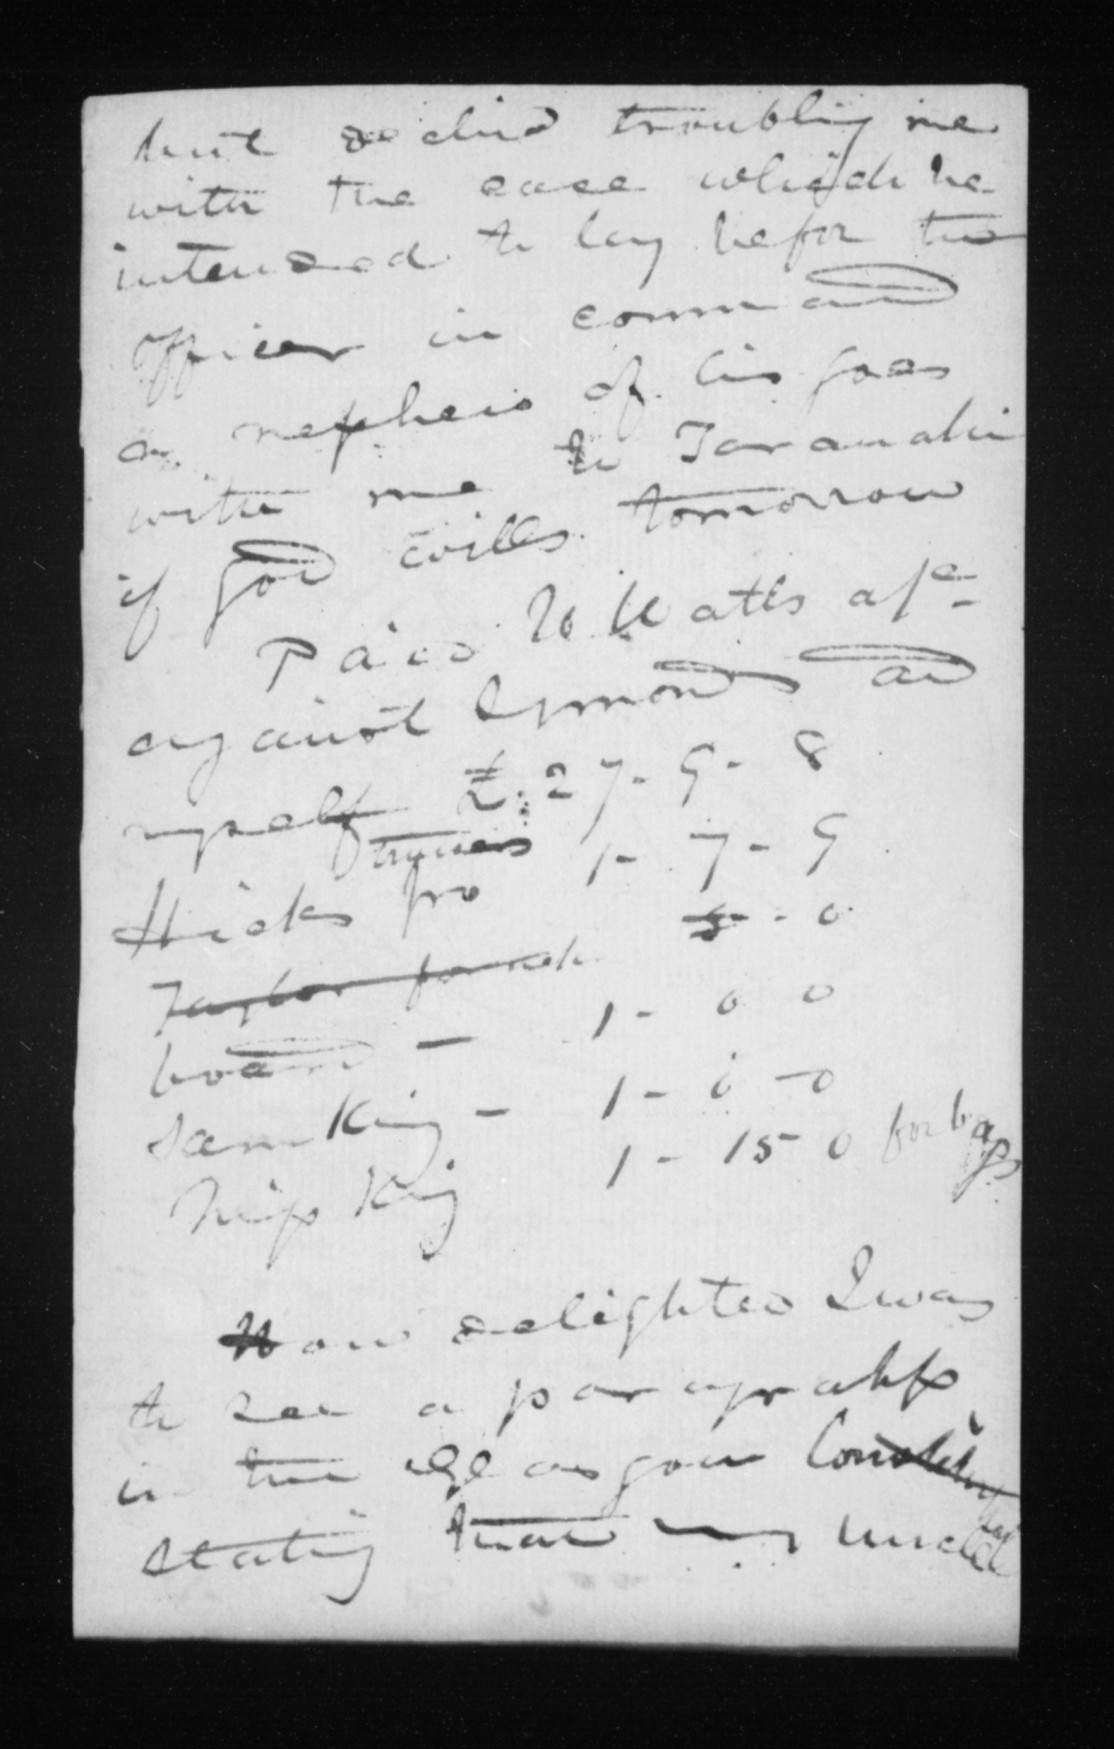 but declind troubling me
with the case which he
intended to lay befor the
officer in command
a nephew of his goes
with me to Taranaki
if god wills tomorrow
Paid W Watts a/c
against Symonds and
myself £. 27 - 9 - 8
Hicks pro 1 - 7 - 9
Taylor for 5 - 0
board - 1 - 0 0
Sam King - 1 - 0 - 0
King 1 - 15 0 for bags
How delighted I was
to see a paragraph
in the glasgow
stating that my uncle